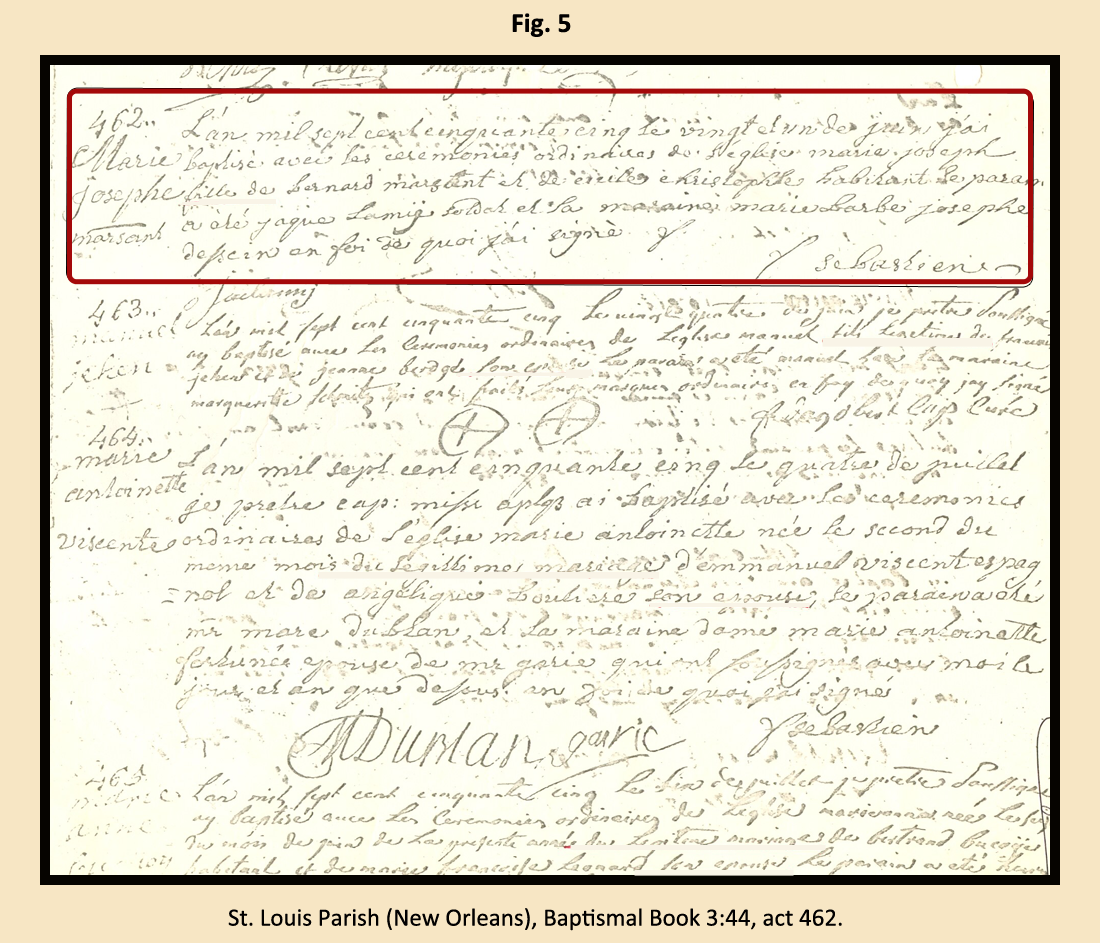 Fig. 5
462..
Marie
Josephe
marsant
L'an mil sept cent cinquante cinq le vingt et un de juin j'ai
baptisé avec les ceremonies ordinaires de l'eglise marie joseph
fille de bernard marsent et de cicile christophle habitant le parain
a été jaque lamig soldat et la maraine marie barbe josephe
en foi de quoi j'ai signé
sebastien
463..
manuel
L'an mil sept cent cinquante cinq le vingt quatre de juin je prêtre soussigné
ay baptisé avec les Ceremonies ordinaires de l'eglise manuel fils
et de jeanne son epouse le parain a eté manuel la maraine
marguerite qui ont faits leurs marques ordinaires en foy de quoy jay signé
Cap Curé
464..
marie
antoinette
viscente
L'an mil sept cent cinquante cinq le quatre de juillet
je pretre cap: miss aplqs ai baptisé avec les ceremonies
ordinaires de l'eglise marie antoinette née le second du
meme mois du legittimes mariage d'emmanuel viscent espag
=nol et de angélique son epouse, le parain a été
mr marc dublan, et la maraine dame marie antoinette
fortunée epouse de mr garic qui ont soussignés avec moi le
jour et an que dessus. en foi de quoi j'ai signé
garic
sebastien
465
anne
L'an mil sept cent cinquante cinq le six de juillet je prêtre soussigné
ay baptisé avec les Ceremonies ordinaires de l'eglise née le
du mois de juin de la presente année du legitime mariage de bertrand
habitant et de marie françoise son epouse le parain a eté
St. Louis Parish (New Orleans), Baptismal Book 3:44, act 462.